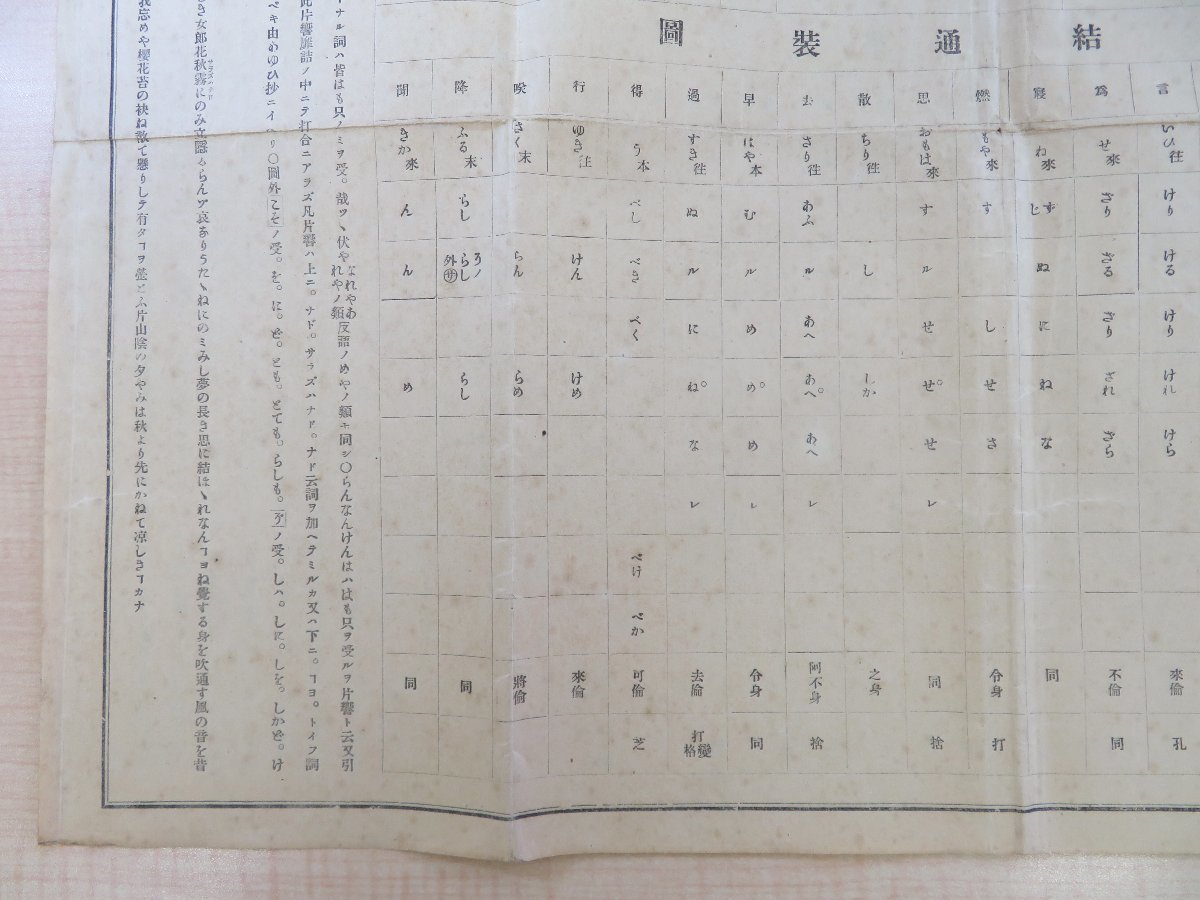 結通裝圖
言 いひ往 けり ける けり けれ けら 來倫 孔
爲 せ來 ざり ざる ざり ざれ ざら 不倫 同
寢 ね來 ずじ ぬ に ね な 同
燃 もや來 す し せ さ 令身 打
思 おもは來 す ル せ せ。 せ レ 同 捨
散 ちり往 し しか 之身
去 さり往 あふ ル あへ あへ。 あへ レ 阿不身 捨
早 はや本 む ル め め。 め レ 令身 同
過 すき往 ぬ ル に ね。 な レ 去倫 打變格
得 う本 べし べき べく べけ べか 可倫 芝
行 ゆき往 けん けめ 來倫
咲 さく末 らん らめ 將倫
降 ふる末 らし らし らし 同
聞 きか來 ん ん め 同
ナル詞ハ皆はも只ノミヲ受。哉ツヽ伏やなれやあれやノ類反語ノめやノ類モ同シ〇らんなんけんはハはも只ヲ受ルヲ片響ト云又引
此片響雁詰ノ中ニテ打合ニアラズ凡片響ハ上ニ。ナド。サラズハナド。ナド云詞ヲ加ヘテミルカ又ハ下ニ。ヿヨ。トイフ詞
ベキ由あゆひ抄ニイヘリ〇圖外こそノ受。を。に。ど。とも。とても。らしも。ノ受。しハ。しに。しを。しかど。け
き女郎花秋霧にのみ立隱るらんサラズハナドア哀なりうたヽねにのミみし夢の長き思に結はヽれなんヿヨね覺する身を吹通す風の音を昔
我忘めや櫻花苔の袂ね散て懸りしテ有タヿヲ螢とふ片山陰の夕やみは秋より先にかねて凉しきヿカナ